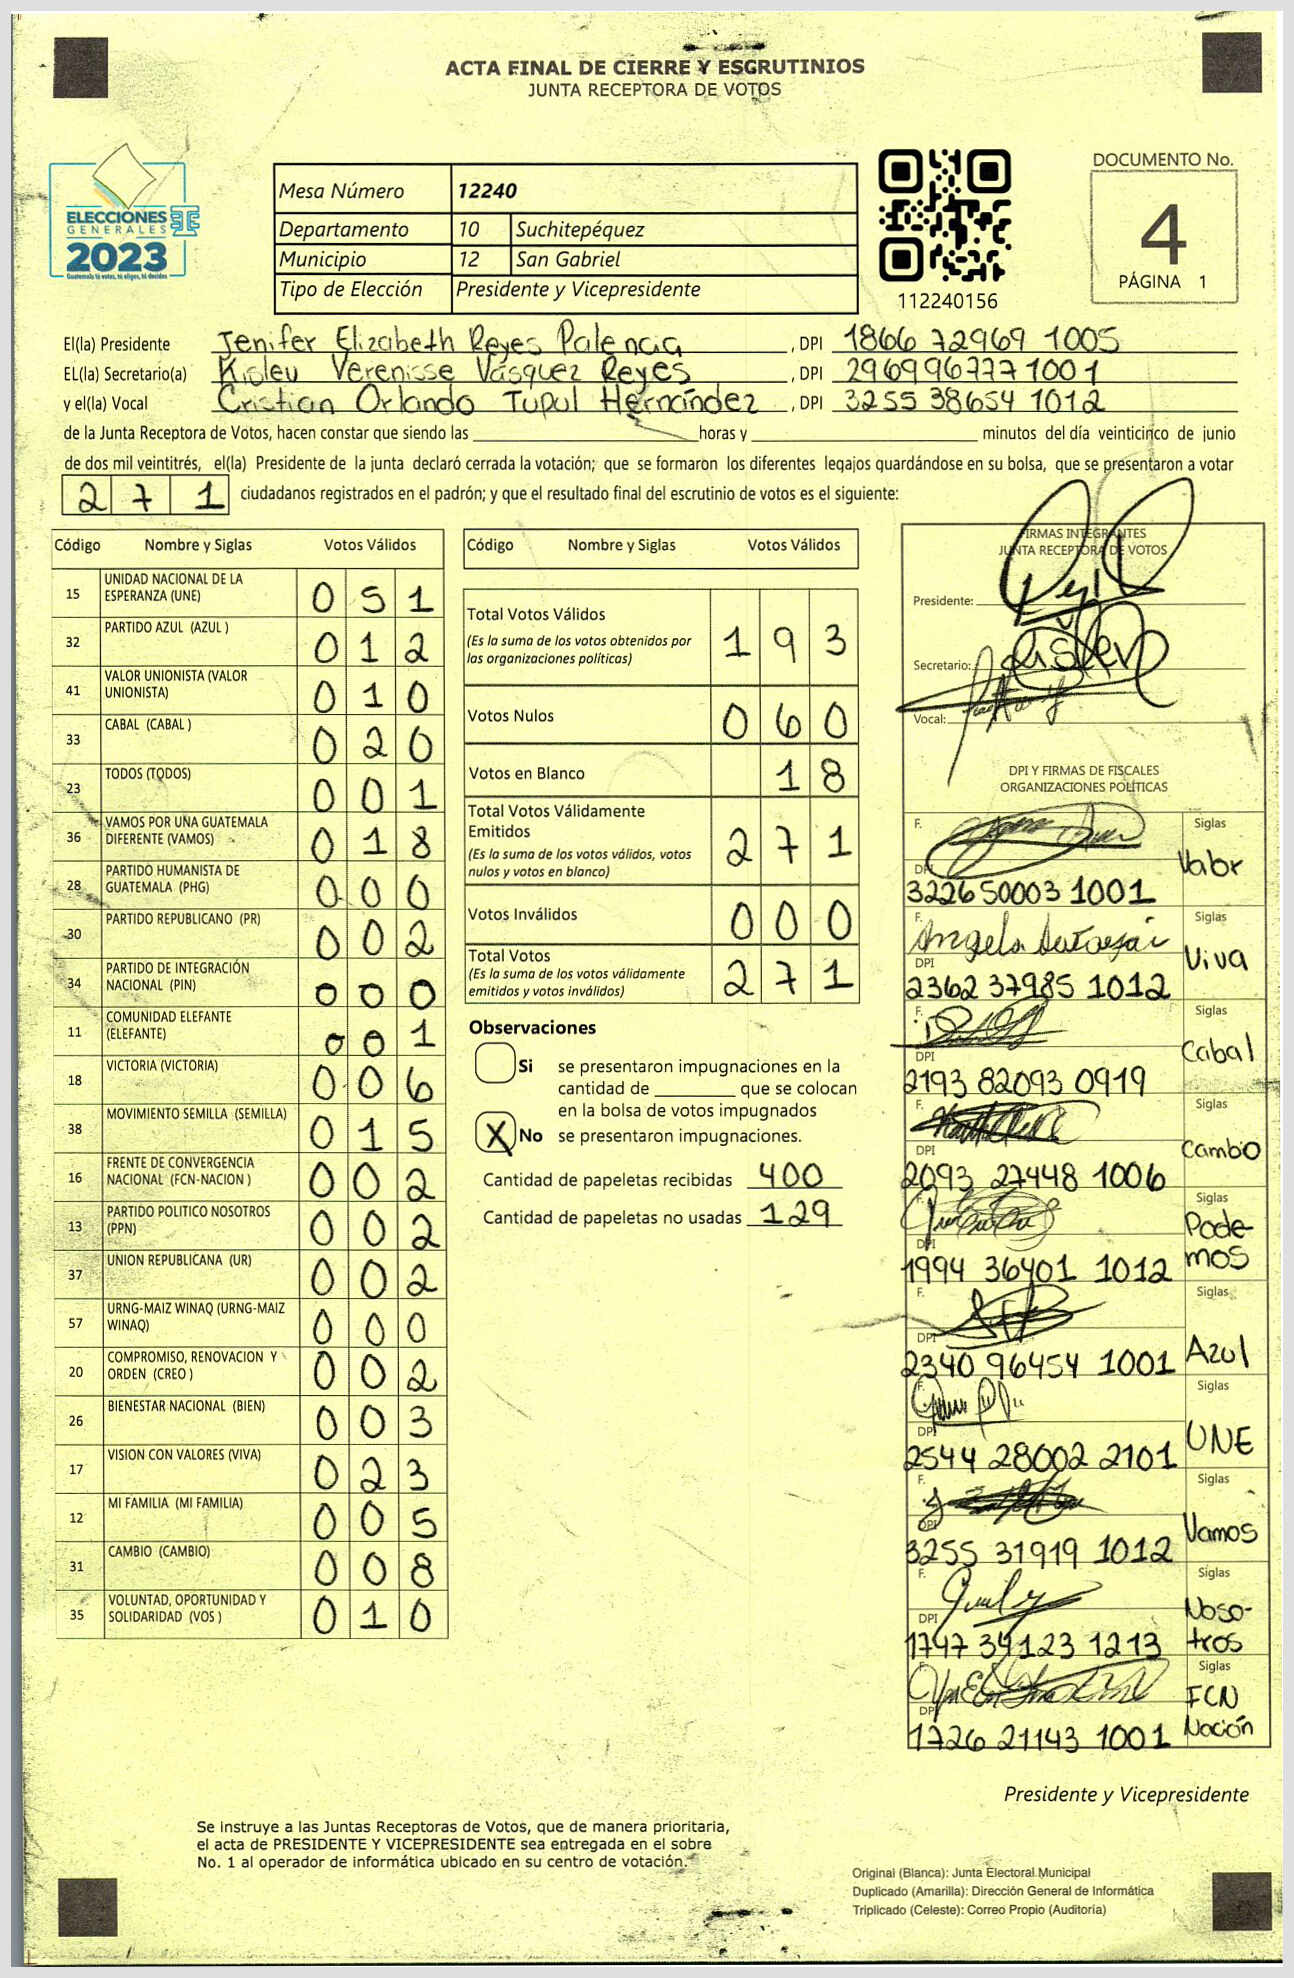 ACTA FINAL DE CIERRE Y ESGRUTINIOS
JUNTA RECEPTORA DE VOTOS
ELECCIONES
GENERALES
2023
Guatemala tú votas, tú eliges, tú decides
Mesa Número 12240
Departamento 10 Suchitepéquez
Municipio 12 San Gabriel
Tipo de Elección Presidente y Vicepresidente
112240156
DOCUMENTO No.
4
PÁGINA 1
El(la) Presidente Jenifer Elizabeth Reyes Palencia , DPI 1866 72969 1005
EL(la) Secretario(a) Kisleu Verenisse Vásquez Reyes , DPI 2969967771001
y el(la) Vocal Cristian Orlando Tupul Hernández , DPI 3255 38654 1012
de la Junta Receptora de Votos, hacen constar que siendo las horas y minutos del día veinticinco de junio
de dos mil veintitrés, el(la) Presidente de la junta declaró cerrada la votación; que se formaron los diferentes legajos guardándose en su bolsa, que se presentaron a votar
2 7 1 ciudadanos registrados en el padrón; y que el resultado final del escrutinio de votos es el siguiente:
Código Nombre y Siglas Votos Válidos
15 UNIDAD NACIONAL DE LA ESPERANZA (UNE) 0 5 1
32 PARTIDO AZUL (AZUL ) 0 1 2
41 VALOR UNIONISTA (VALOR UNIONISTA) 0 1 0
33 CABAL (CABAL ) 0 2 0
23 TODOS (TODOS) 0 0 1
36 VAMOS POR UNA GUATEMALA DIFERENTE (VAMOS) 0 1 8
28 PARTIDO HUMANISTA DE GUATEMALA (PHG) 0 0 0
30 PARTIDO REPUBLICANO (PR) 0 0 2
34 PARTIDO DE INTEGRACIÓN NACIONAL (PIN) 0 0 0
11 COMUNIDAD ELEFANTE (ELEFANTE) 0 0 1
18 VICTORIA (VICTORIA) 0 0 6
38 MOVIMIENTO SEMILLA (SEMILLA) 0 1 5
16 FRENTE DE CONVERGENCIA NACIONAL (FCN-NACION ) 0 0 2
13 PARTIDO POLITICO NOSOTROS (PPN) 0 0 2
37 UNION REPUBLICANA (UR) 0 0 2
57 URNG-MAIZ WINAQ (URNG-MAIZ WINAQ) 0 0 0
20 COMPROMISO, RENOVACION Y ORDEN (CREO ) 0 0 2
26 BIENESTAR NACIONAL (BIEN) 0 0 3
17 VISION CON VALORES (VIVA) 0 2 3
12 MI FAMILIA (MI FAMILIA) 0 0 5
31 CAMBIO (CAMBIO) 0 0 8
35 VOLUNTAD, OPORTUNIDAD Y SOLIDARIDAD (VOS ) 0 1 0
Código Nombre y Siglas Votos Válidos
Total Votos Válidos 1 9 3
(Es la suma de los votos obtenidos por
las organizaciones políticas)
Votos Nulos 0 6 0
Votos en Blanco 1 8
Total Votos Válidamente
Emitidos 2 7 1
(Es la suma de los votos válidos, votos
nulos y votos en blanco)
Votos Inválidos 0 0 0
Total Votos 2 7 1
(Es la suma de los votos válidamente
emitidos y votos inválidos)
Observaciones
Si se presentaron impugnaciones en la
cantidad de que se colocan
en la bolsa de votos impugnados
X No se presentaron impugnaciones.
Cantidad de papeletas recibidas 400
Cantidad de papeletas no usadas 129
FIRMAS INTEGRANTES
JUNTA RECEPTORA DE VOTOS
Presidente:
Secretario:
Vocal:
DPI Y FIRMAS DE FISCALES
ORGANIZACIONES POLÍTICAS
F. Siglas
DPI Valor
322650003 1001
F. Angela Siglas
DPI Viva
2362 37985 1012
F. Siglas
DPI Cabal
2193 82093 0919
F. Siglas
DPI Cambio
2093 27448 1006
F. Siglas
DPI Podemos
1994 36401 1012
F. Siglas
DPI Azul
2340 96454 1001
F. Siglas
DPI UNE
2544 28002 2101
F. Siglas
DPI Vamos
3255 31919 1012
F. Siglas
DPI Nosotros
1747 34123 1213
F. Siglas
DPI FCN Nación
1726 21143 1001
Presidente y Vicepresidente
Se instruye a las Juntas Receptoras de Votos, que de manera prioritaria,
el acta de PRESIDENTE Y VICEPRESIDENTE sea entregada en el sobre
No. 1 al operador de informática ubicado en su centro de votación.
Original (Blanca): Junta Electoral Municipal
Duplicado (Amarilla): Dirección General de Informática
Triplicado (Celeste): Correo Propio (Auditoria)